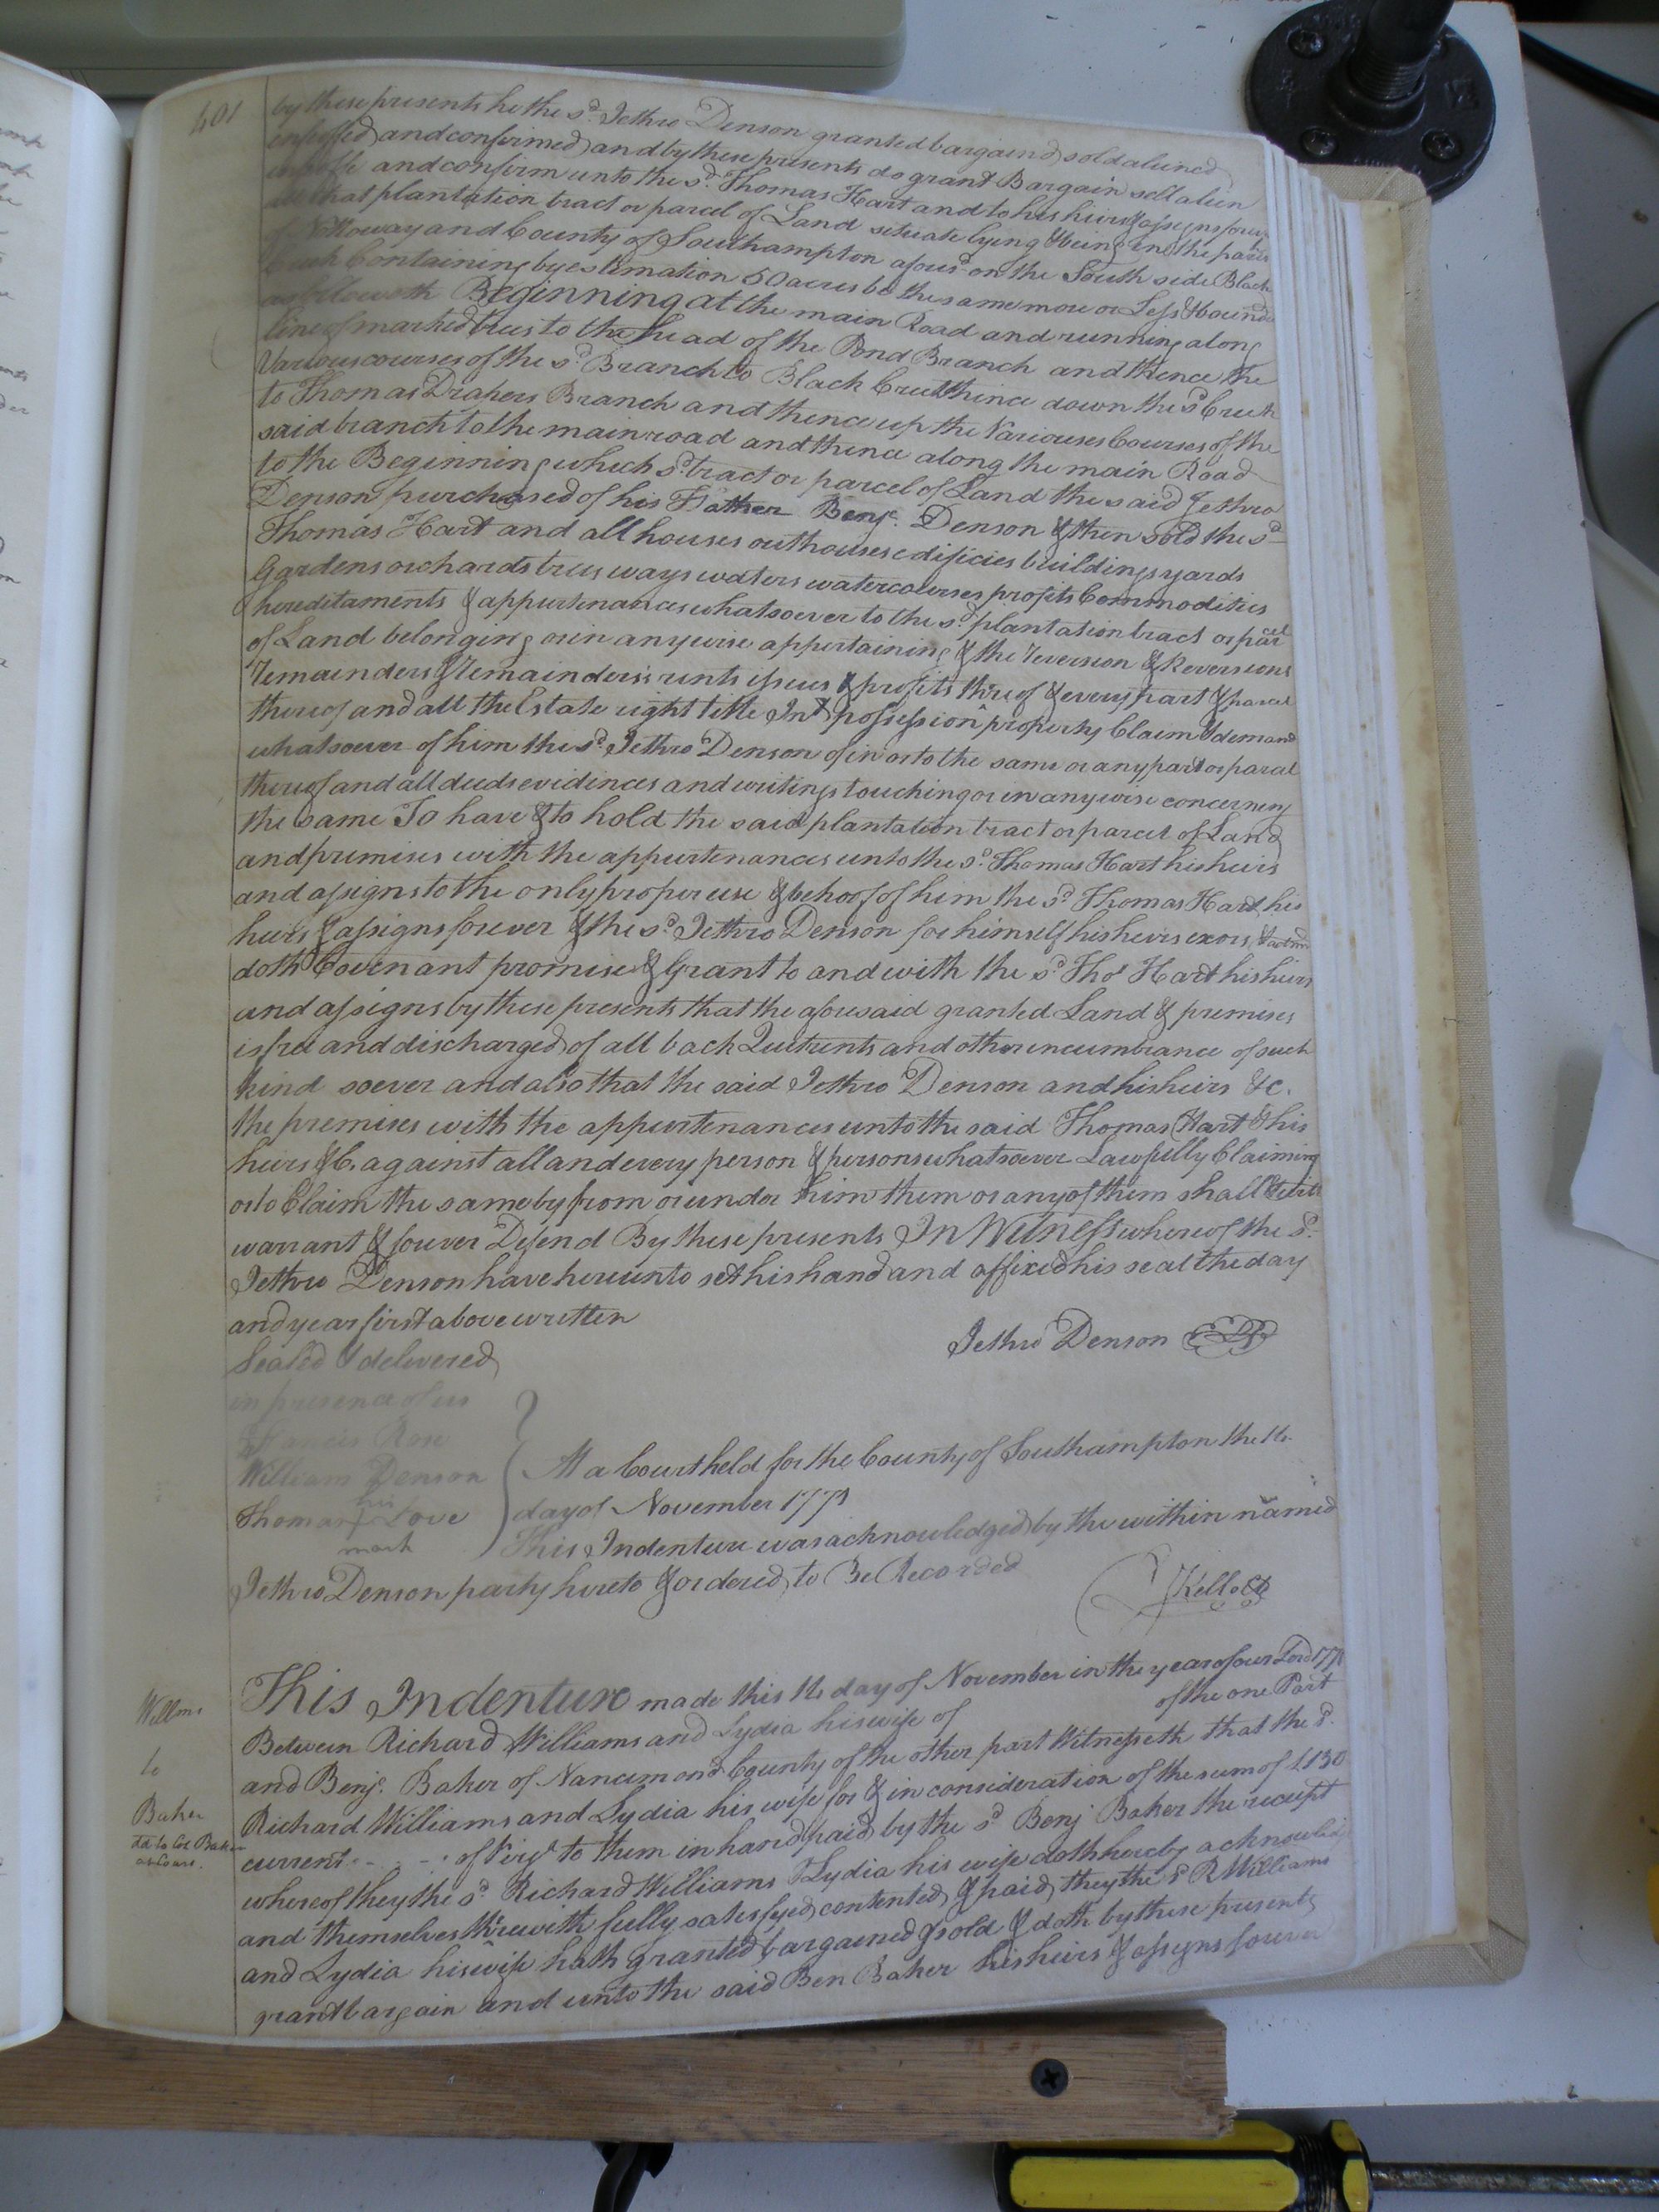 401
by these presents he the sd. Jethro Denson granted bargaind sold aliened
enfeoffed and confirmed and by these presents do grant Bargain sell alien
enfeoffe and confirm unto the sd. Thomas Hart and to his heirs & assigns forever
all that plantation tract or parcel of Land situate lying & being in the parish
of Nottoway and County of Southampton aforesd. on the South side Black
Creek Containing by estimation 50 acres be the same more or Less & bounded
as followeth Beginning at the main Road and running along
line of marked trees to the head of the Pond Branch and thence the
Various courses of the sd. Branch to Black Creek thence down the sd Creek
to Thomas Drakers Branch and thence up the Variouses Courses of the
said branch to the main road and thence along the main Road
to the Beginning which sd. tract or parcel of Land the said Jethro
Denson purchased of his Father Benja. Denson & then sold the sd
Thomas Hart and all houses outhouses edificies buildings yards
Gardens orchards trees ways waters watercourses profits Commodities
hereditaments & appurtenances whatsoever to the sd. plantation tract or parcel
of Land belonging or in anywise appertaining & the reversion & Reversions
remainder & remainders rents issues & profits thereof & every part & parcel
thereof and all the Estate right title Int possession property Claim & demand
whatsoever of him the sd. Jethro Denson of in or to the same or any part or parcel
thereof and all deeds evidences and writings touching or in anywise concerning
the same To have & to hold the said plantation tract or parcel of Land
and premises with the appurtenances unto the sd. Thomas Hart his heirs
and assigns to the only proper use & behoof of him the sd Thomas Hart his
heirs & assigns forever & the sd. Jethro Denson for himself his heirs exors
doth Covenant promise & Grant to and with the sd. Thos Hart his heirs
and assigns by these presents that the aforesaid granted Land & premises
is free and discharged of all back Quitrents and other incumbrance of such
kind soever and also that the said Jethro Denson and his heirs &c.
the premises with the appurtenances unto the said Thomas Hart & his
heirs &c. against all and every person & persons whatsoever Lawfully Claiming
or to Claim the same by from or under him them or any of them shall & will
warrant & forever Defend By these presents In Witness whereof the sd.
Jethro Denson have hereunto set his hand and affixed his seal the day
and year first above written
Jethro Denson
Sealed & delivered
in presence of us
William Denson
Thomas his Love
mark
At a Court held for the County of Southampton the 14
day of November 1771
This Indenture was acknowledged by the within named
Jethro Denson party hereto & ordered to Be Recorded
Kello CC
Willms
to
Baker
dd. to Col Baker
This Indenture made this 14 day of November in the year of our Lord 1771
Between Richard Williams and Lydia his wife of of the one Part
and Benja. Baker of Nancimond County of the other part Witnesseth that the sd.
Richard Williams and Lydia his wife for & in consideration of the sum of £130
current of Virga to them in hand paid by the sd Benj Baker the receipt
whereof they the sd. Richard Williams & Lydia his wife doth hereby acknowledge
and themselves therewith fully satisfyed contented & paid they the sd R Williams
and Lydia his wife hath granted bargained & sold & doth by these presents
grant bargain and unto the said Ben Baker his heirs & assigns forever